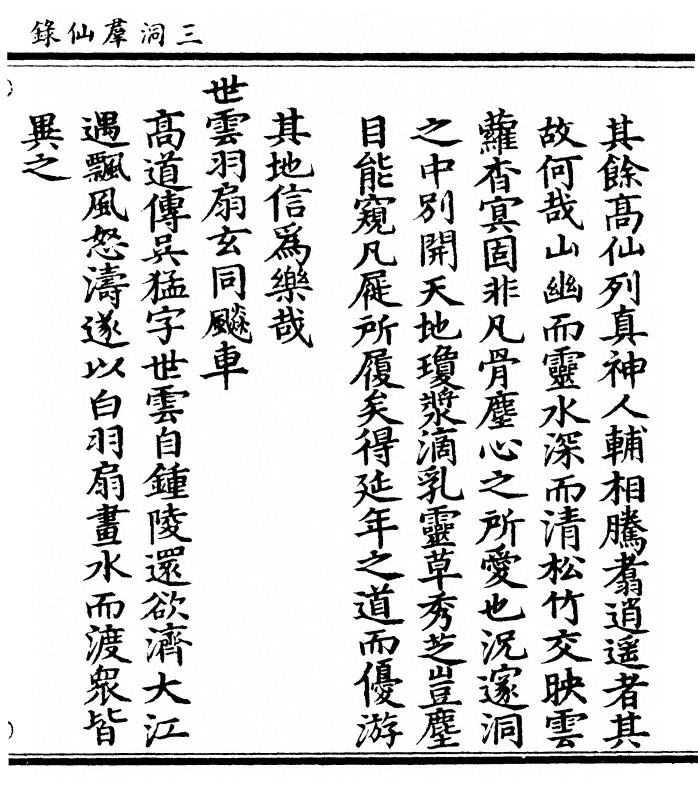 三洞羣仙錄
其餘髙仙列真神人輔相騰翥逍遥者其
故何哉山幽而靈水深而清松竹交映雲
蘿杳冥固非凡骨塵心之所愛也況邃洞
之中别開天地瓊漿滴乳靈草秀芝豈塵
目能窺凡屣所履矣得延年之道而優游
其地信爲樂哉
世雲羽扇玄同飈車
髙道傳吳猛字世雲自鍾陵還欲濟大江
遇飄風怒濤遂以白羽扇畫水而渡衆皆
異之